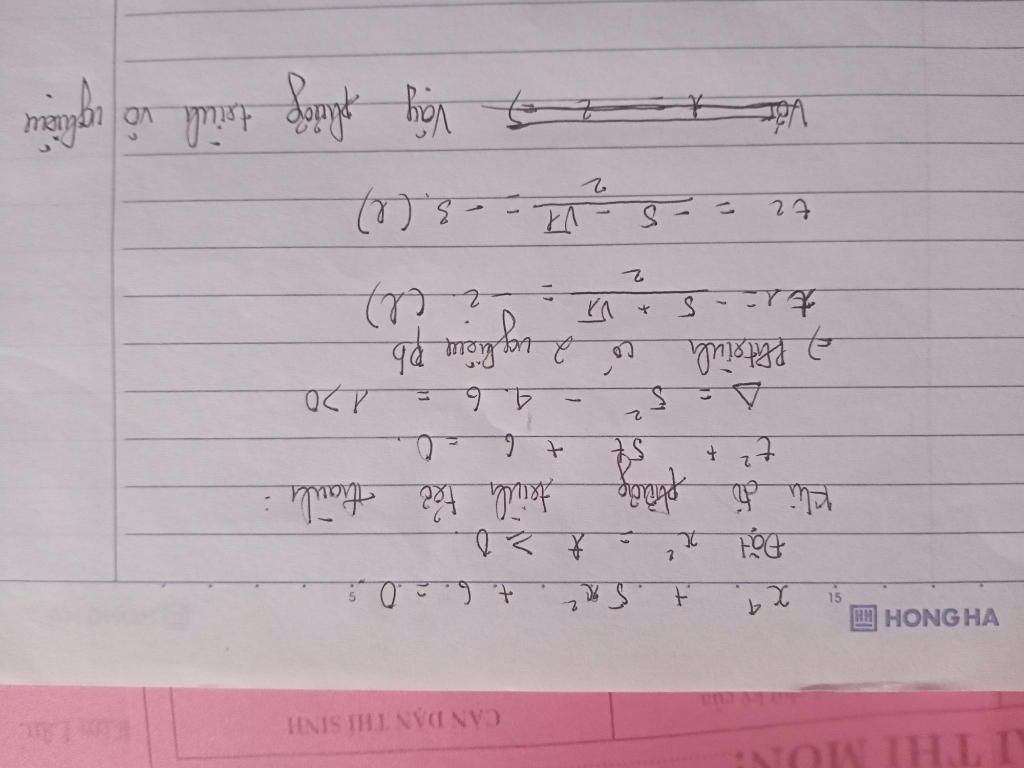 HONG HA
15
5
x⁴ + 5x² + 6 = 0
Đặt x² = t ≥ 0
Khi đó phương trình trở thành :
t² + 5t + 6 = 0.
Δ = 5² - 4.6 = 1 > 0
=) Pt trình có 2 nghiệm pb
t1 = - 5 + √1 / 2 = - 2 (l)
t2 = - 5 - √1 / 2 = - 3. (l)
Vậy phương trình vô nghiệm
CĂN DẶN THÍ SINH
THI MÔN: